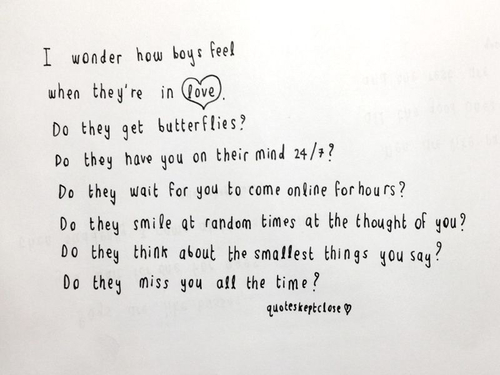 I wonder how boys feel
when they're in love.
Do they get butterflies?
Do they have you on their mind 24/7?
Do they wait for you to come online for hours?
Do they smile at random times at the thought of you?
Do they think about the smallest things you say?
Do they miss you all the time?
quoteskeptclose♡